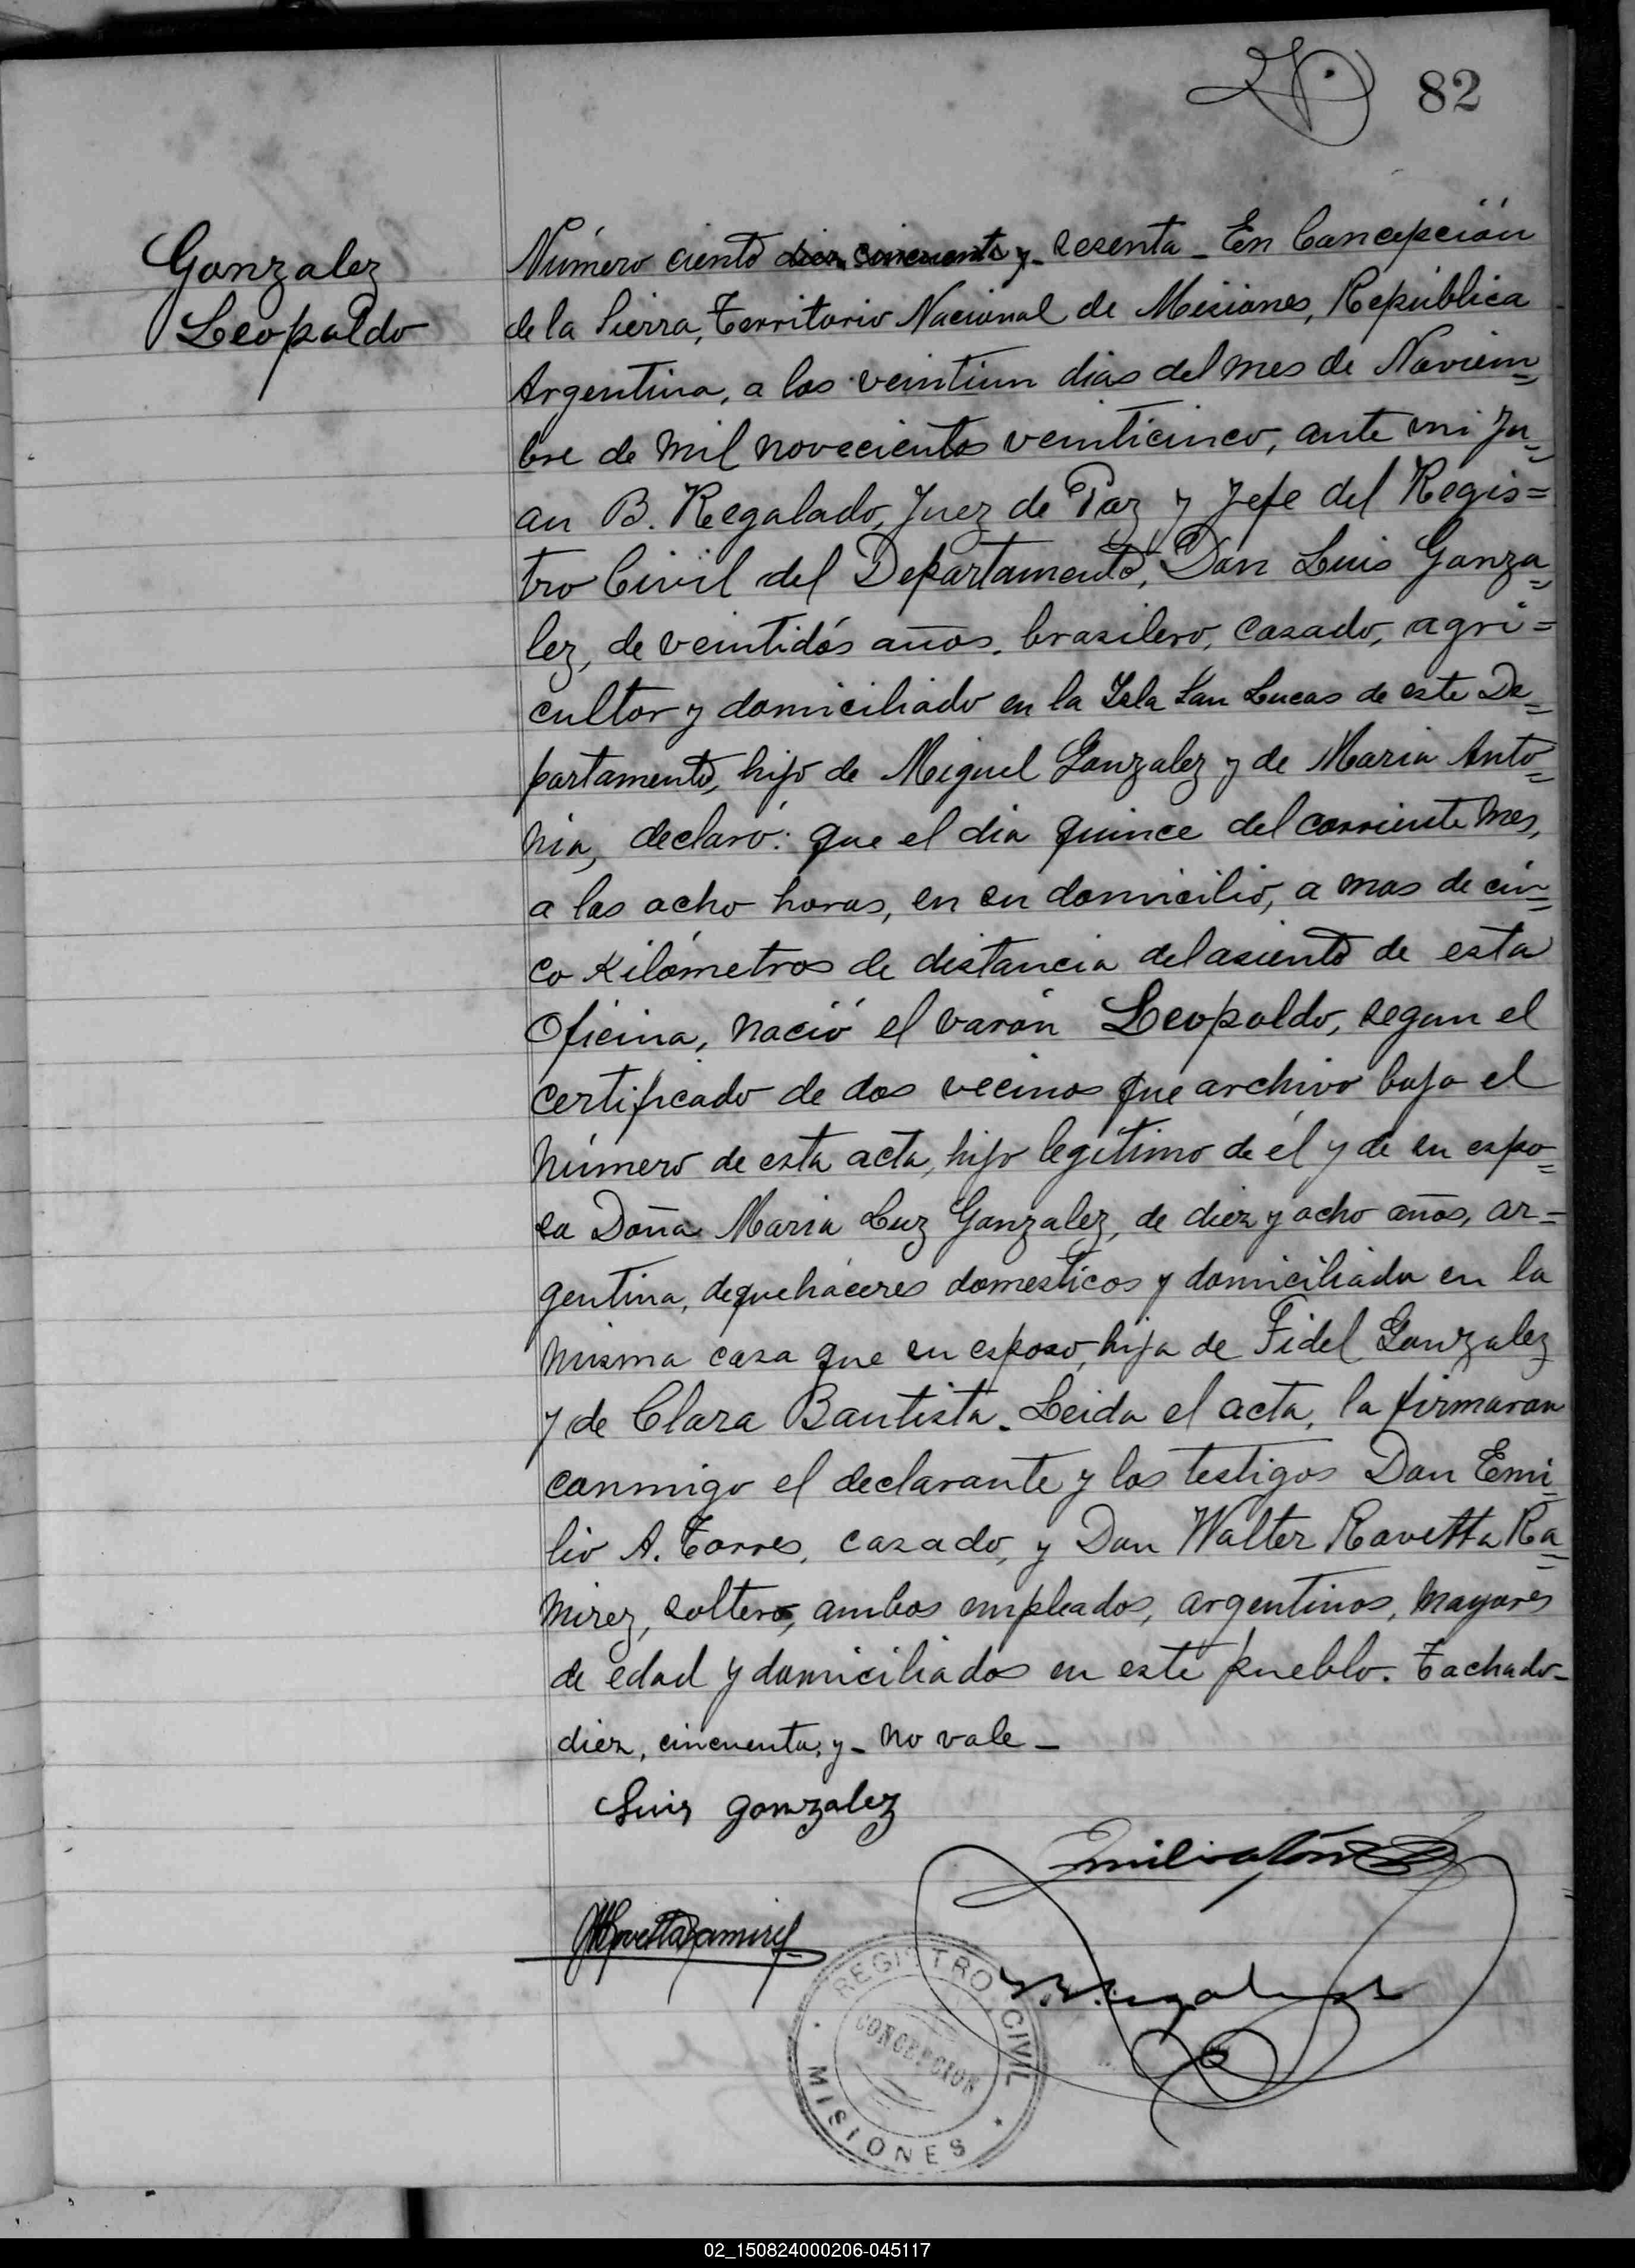 82
Gonzalez
Leopoldo
Número ciento diez cincuenta y sesenta - En Concepción
de la Sierra, Territorio Nacional de Misiones, República
Argentina, a los veintiun dias del mes de Noviem=
bre de mil novecientos veinticinco, ante mi Ju=
an B. Regalado, Juez de Paz y Jefe del Regis=
tro Civil del Departamento, Don Luis Gonza=
lez, de veintidós años, brasilero, casado, agri=
cultor y domiciliado en la Isla San Lucas de este De=
partamento, hijo de Miguel Gonzalez y de Maria Anto=
nia, declaró: que el dia quince del corriente mes,
a las ocho horas, en su domicilio, a mas de cin=
co Kilómetros de distancia del asiento de esta
Oficina, nació el varón Leopoldo, segun el
certificado de dos vecinos que archivo bajo el
número de esta acta, hijo legítimo de él y de su espo=
sa Doña Maria Luz Gonzalez, de diez y ocho años, ar=
gentina, de quehaceres domesticos y domiciliada en la
misma casa que su esposo, hija de Fidel Gonzalez
y de Clara Bautista. Leida el acta, la firmaron
conmigo el declarante y los testigos Don Emi=
lio A. Torres, casado, y Don Walter Ravetta Ra=
mirez, soltero, ambos empleados, argentinos, mayores
de edad y domiciliados en este pueblo. Tachado-
diez, cincuenta, y - no vale -
Luis gonzalez
REGISTRO CIVIL
CONCEPCION
MISIONES
02_150824000206-045117